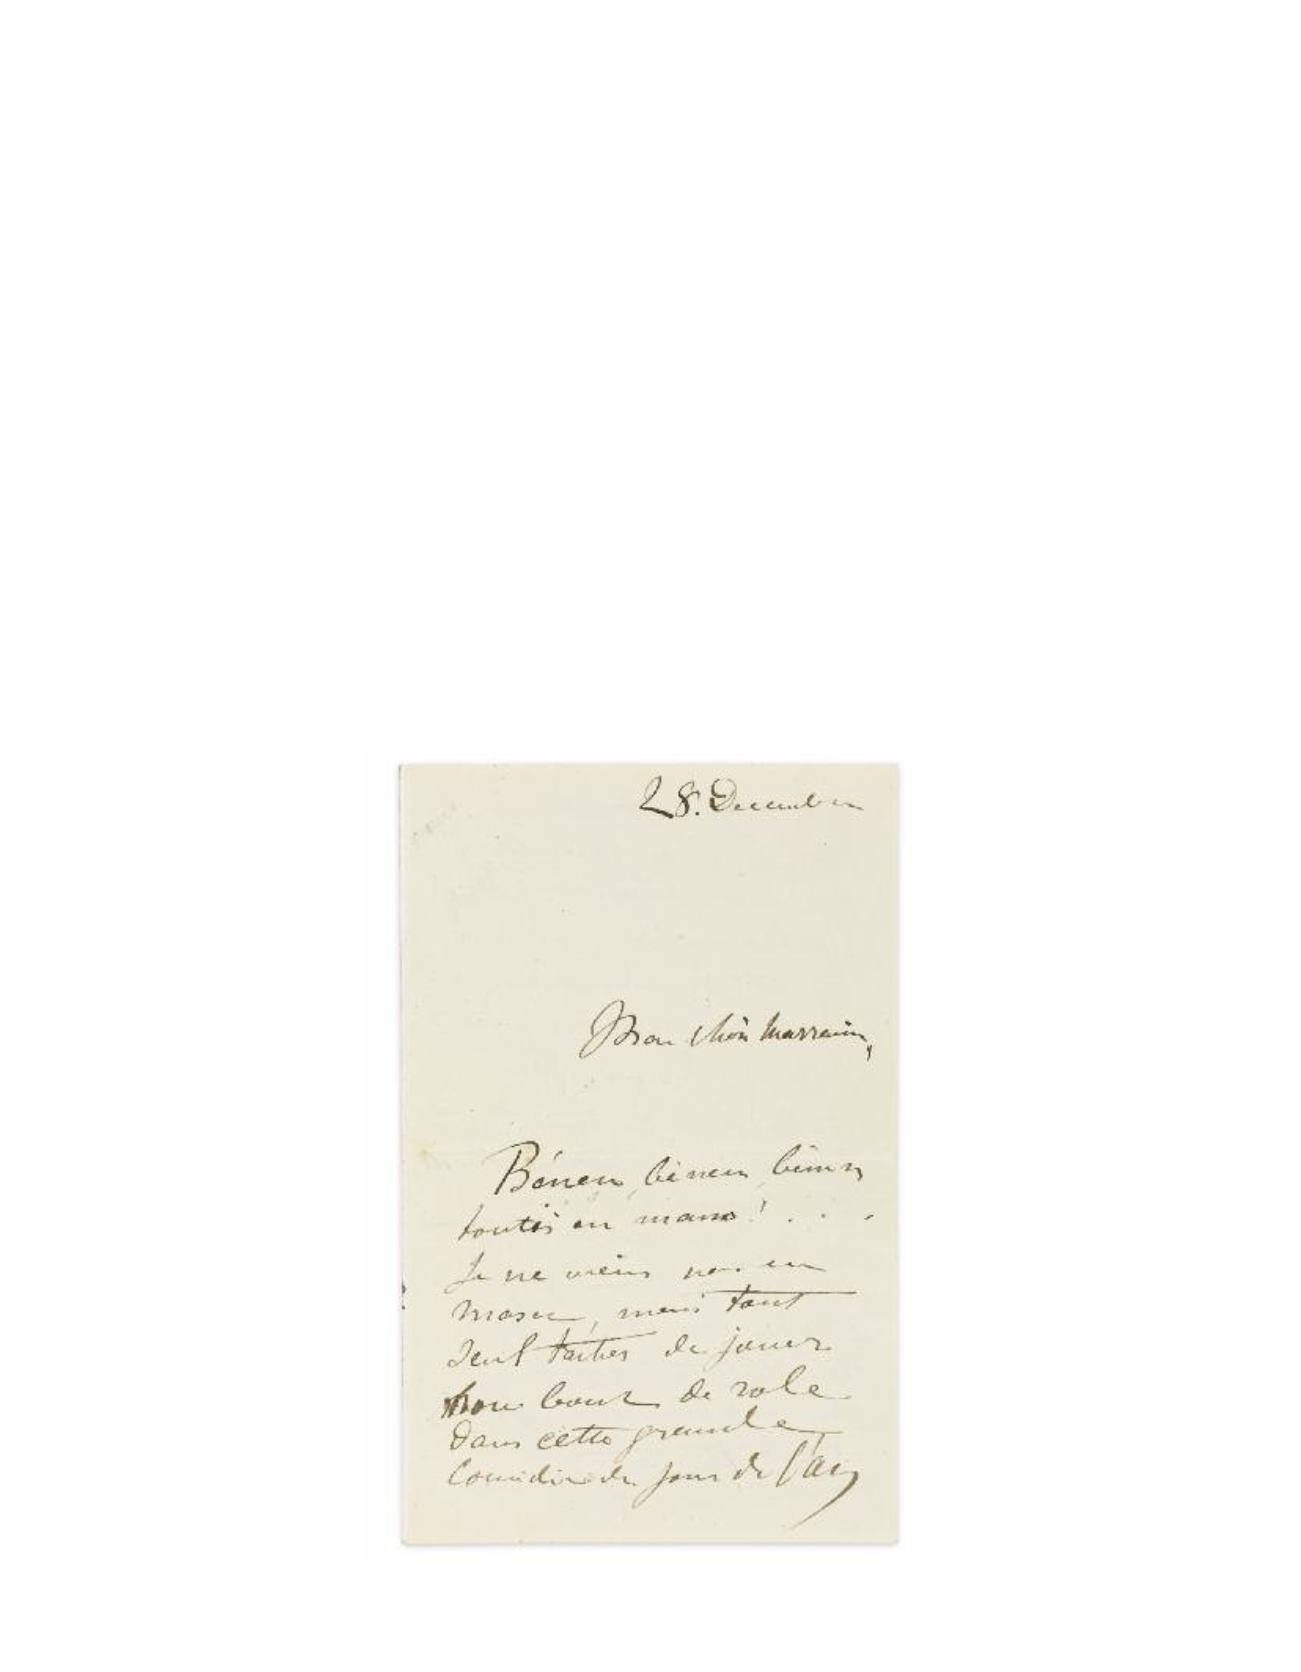 28. Decembre
Mon chèr Marraine,
Bénen, bénen, bénen
toutès en masso! . . .
Je ne viens pas en
masse, mais tout
seul tâcher de jouer
mon bout de role
dans cette grande
Comédie du jour de l'an